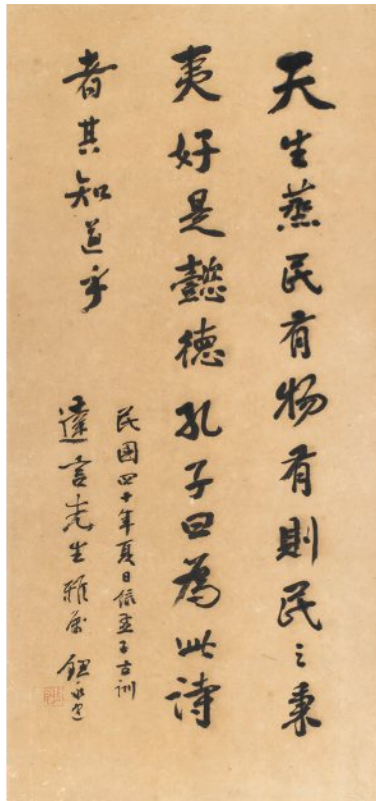 天生蒸民有物有則民之秉
夷好是懿德孔子曰為此詩
者其知道乎
民國四十年夏日錄孟子古訓
達言先生雅屬 鈕永建